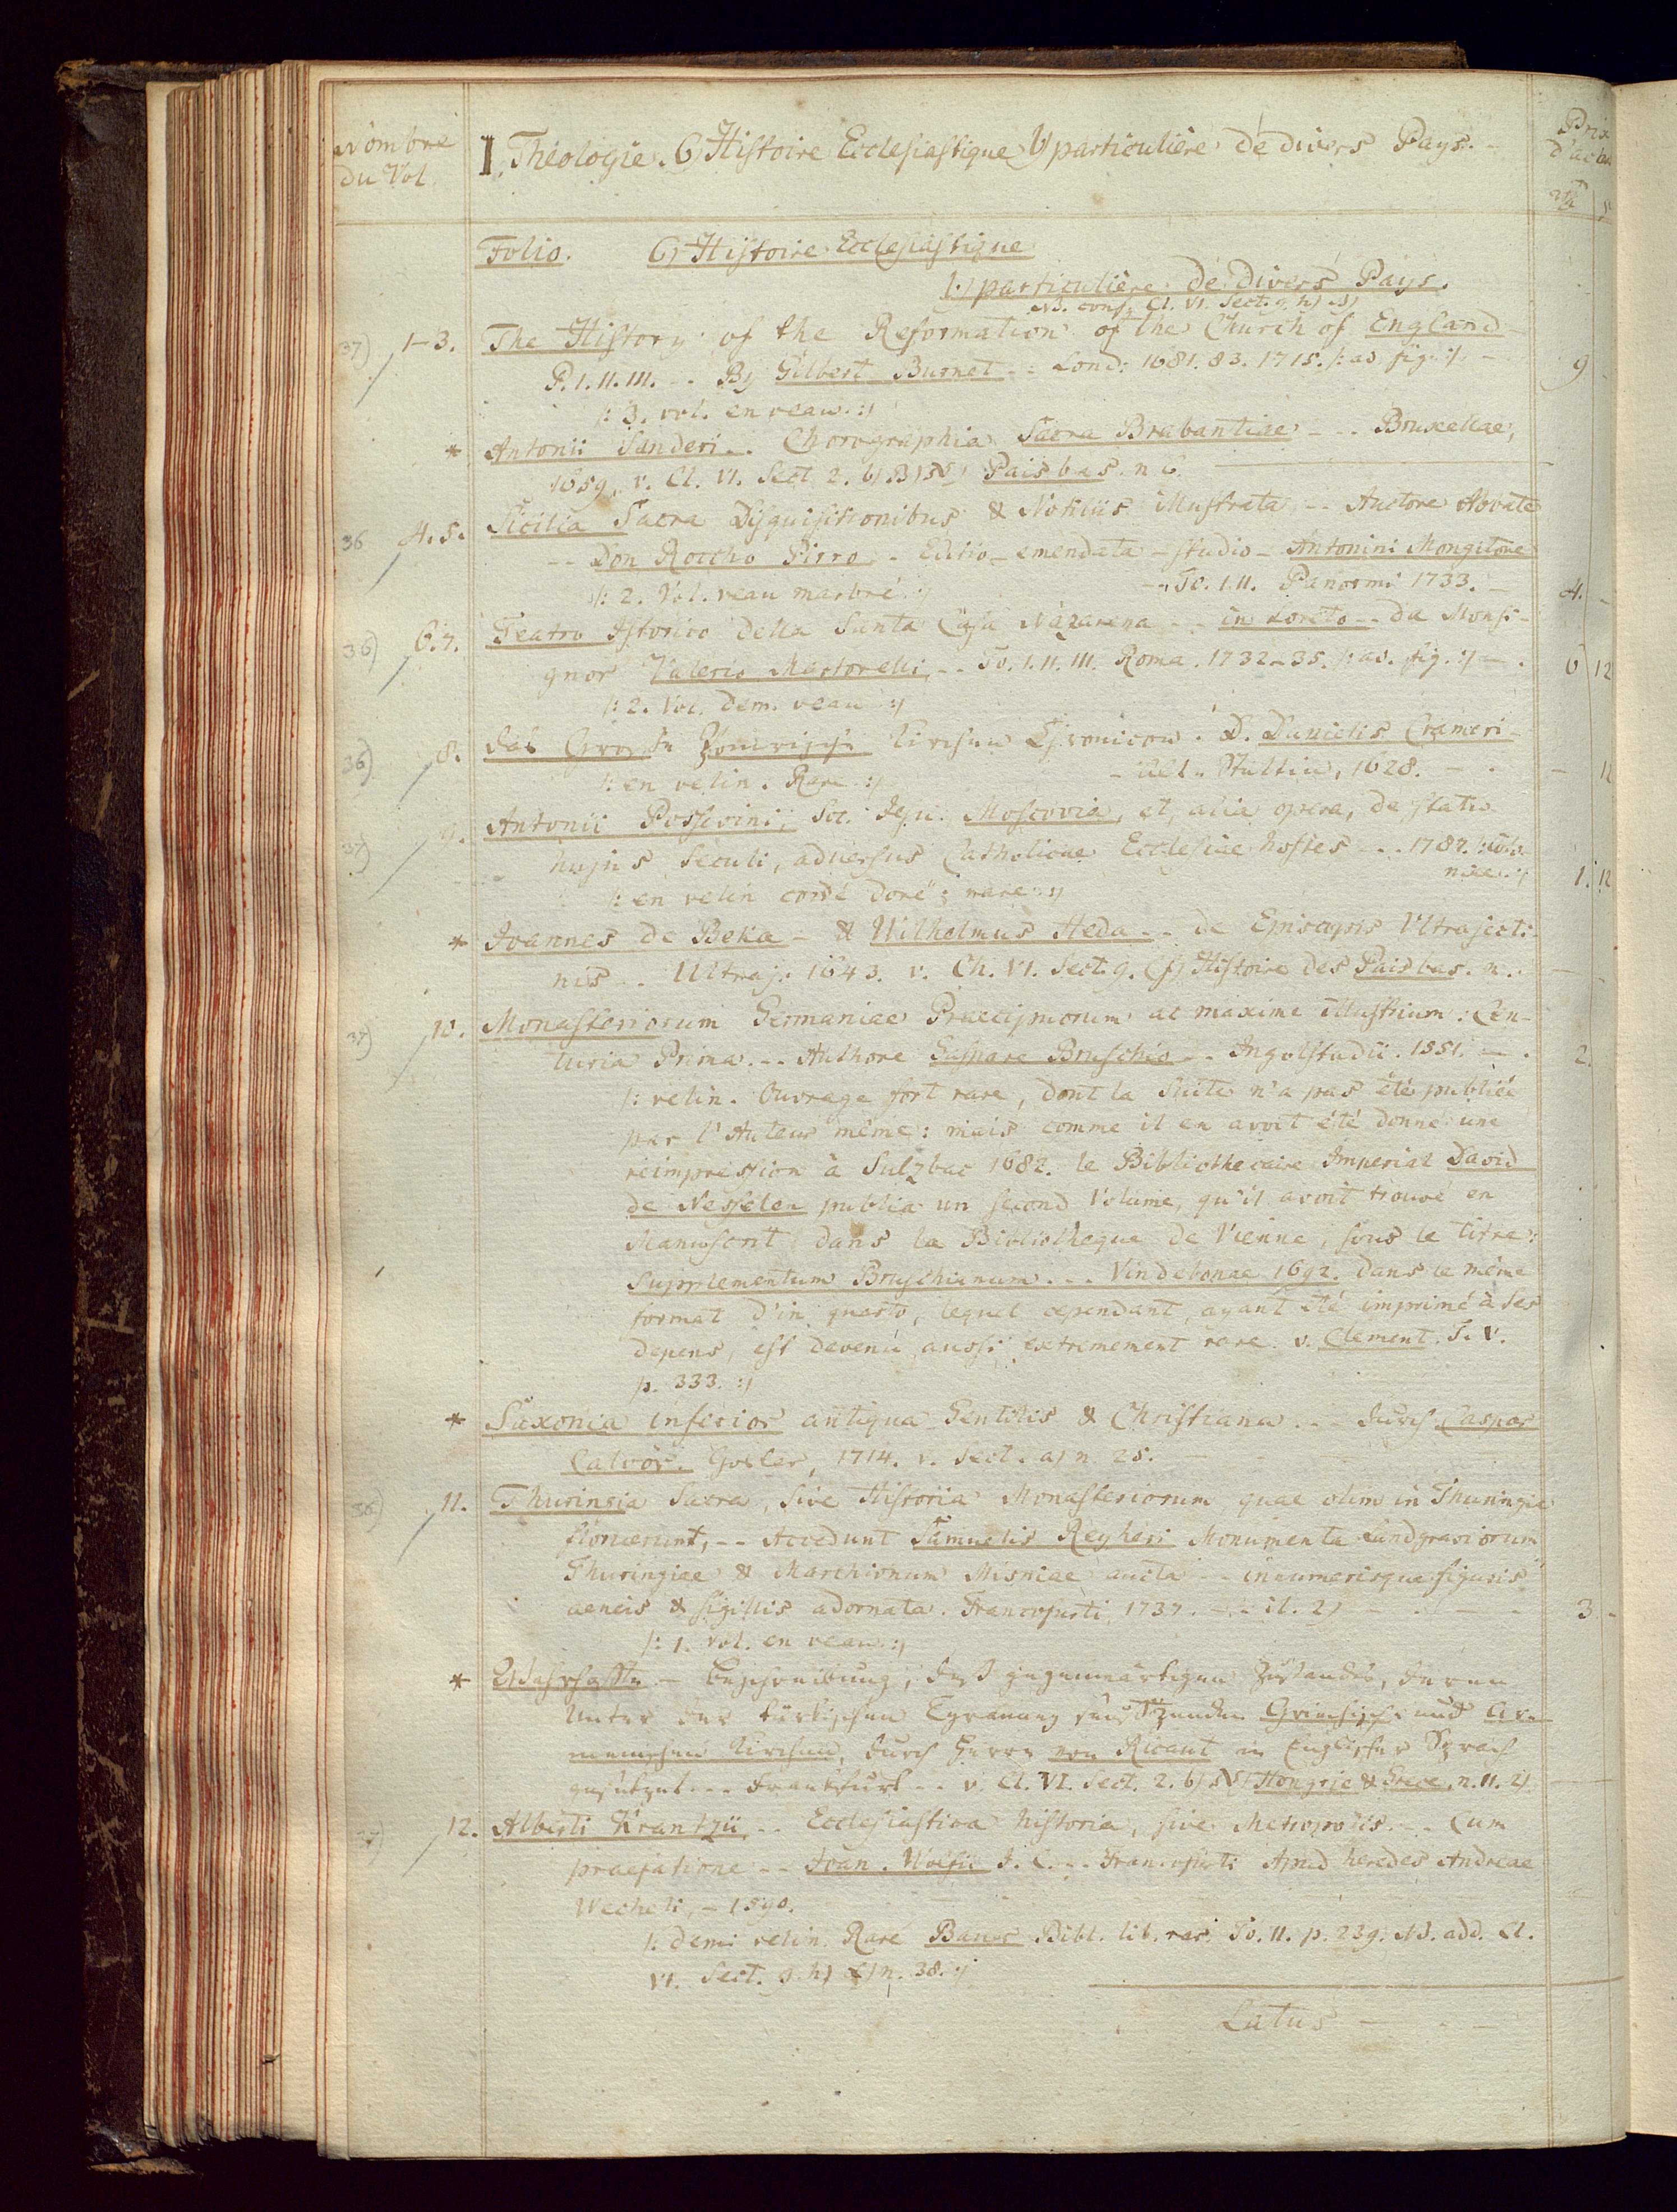 Nombre
du Vol.
I. Theologie. 6) Histoire Ecclesiastique b) particulière de divers Pays. -
Prix
d'achat
Folio. 6) Histoire Ecclesiastique
b) particulière de divers Pays.
NB. conf. Cl. VI. Sect. 9. h)
37) 1-3. The History of the Reformation of the Church of England
P. I. II. III. -- By Gilbert Burnet -- Lond: 1681. 83. 1715. /: as. fig. :/ - 9 -
/: 3. vol. en veau. :/
* Antonii Sanderi.. Chorographia Sacra Brabantiae -- Bruxellae,
1659, v. Cl. VI. Sect. 2. b) Pais bas. n 6.
36 4. 5. Sicilia Sacra Disquisitionibus & Notitiis illustrata, -- Auctore Abbate
-- Don Roccho Pirro, - Editio - emendata - studio - Antonini Mongitore
/: 2. Vol. veau marbré. :/ -- To. I. II. Panormi 1733. - 4. -
36) 6. 7. Teatro Istorico della Santa Casa Nazarena -- in Loreto -- da Monsi-
gnor Valerio Martorelli, -- To. I. II. III. Roma. 1732-35. /: as. fig. :/ - . 6 12
/: 2. Vol. dem. veau :/
36) 8. das Grosse Pomrische Kirchen Chronicon. D. Danielis Crameri -
/: en velin. Rare :/ - Alt-Stettin, 1628. - . - 12
37) 9. Antonii Possevini, Soc. Jesu. Moscovia, et, alia opera, de statu
hujus Seculi, adversus Catholicae Ecclesiae hostes -- 1787. /: Colo-
/: en velin cordé doré; rare :/ niae. :/ 1. 12
* Joannes de Beka - & Wilhelmus Heda -- de Episcopis Ultrajecti-
nis -- Ultraj. 1643. v. Ch. VI. Sect. 9. f) Histoire des Pais bas. n.
37) 10. Monasteriorum Germaniae Praecipuorum ac maxime illustrium: Cen-
turia Prima. -- Authore Gaspare Bruschio -- Ingolstadii. 1551. - . 2.
/: velin. Ouvrage fort rare, dont la Suite n'a pas été publiée
par l'Auteur même: mais comme il en avoit été donné une
réimpression à Sulzbac 1682. le Bibliothecaire Imperial David
de Nesselen publia un second Volume, qu'il avoit trouvé en
Manuscrit dans la Bibliotheque de Vienne, sous le titre:
Supplementum Bruschianum. -- Vindebonae 1692. dans le même
format d'in quarto, lequel cependant, ayant été imprimé à ses
depens, est devenú aussi extrêmement rare. v. Clement. T. V.
p. 333. :/
* Saxonia inferior antiqua Gentilis & Christiana. -- durch Caspar
Calvör. Goslar, 1714. v. Sect. a) n. 25.
36) 11. Thuringia Sacra, Sive Historia Monasteriorum, quae olim in Thuringia
floruerunt, -- Accedunt Samuelis Reyheri Monumenta Landgraviorum
Thuringiae & Marchionum Misniae aucta -- innumerisque figuris
aeneis & sigillis adornata. Francofurti, 1737. -- it. 2) 3 -
/: 1. vol. en veau. :/
* Wahrhaffte - Beschreibung, deß gegenwärtigen Zustandes, deren
Unter der türkischen Tyranney seufftzenden Griechisch- und Ar-
menischen Kirchen, durch Herrn von Ricaut in Englischer Sprach
gesetzet. -- Franckfurt -- v. Cl. VI. Sect. 2. b) Hongrie & Grece. n. 11. 2)
37) 12. Alberti Krantzii, -- Ecclesiastica historia, sive Metropolis. -- Cum
praefatione -- Joan. Wolfii J. C. -- Francofurti Apud heredes Andreae
Wecheli, - 1590.
/: demi velin. Rare Bauer Bibl. lib. rar. To. II. p. 239. NB. add. Cl.
VI. Sect. 9. h) n. 38. :/
Latus - - -